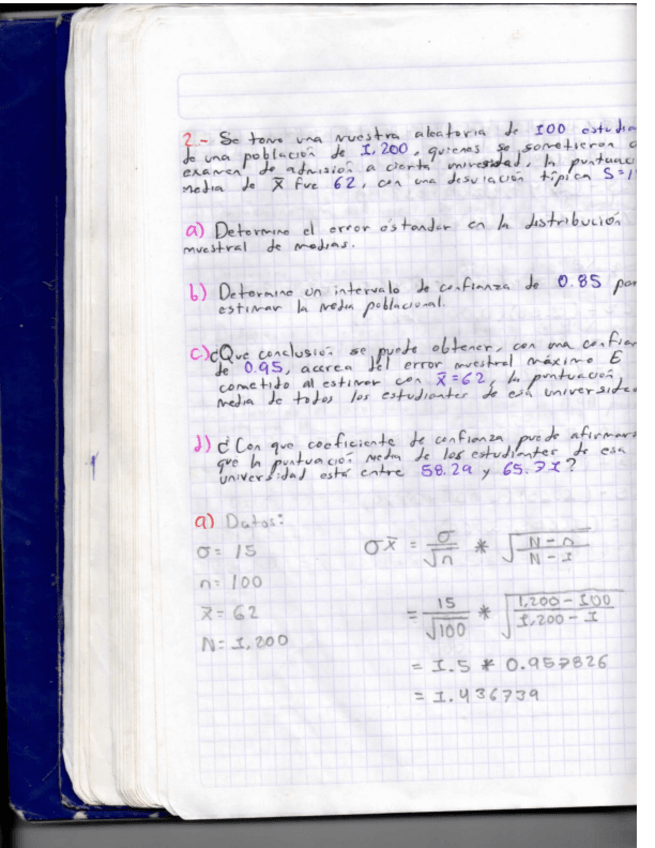 2.- Se tomo una muestra aleatoria de 100 estudia
de una población de 1,200, quienes se sometieron a
examen de admisión a cierta universidad, la puntuac
media de x̄ fue 62, con una desviación típica S=1
a) Determine el error estandar en la distribución
muestral de medias.
b) Determine un intervalo de confianza de 0.85 par
estimar la media poblacional.
c) ¿Que conclusión se puede obtener, con una confian
de 0.95, acerca del error muestral máximo E
cometido al estimar con x̄=62, la puntuación
media de todos los estudiantes de esa universida
d) ¿Con que coeficiente de confianza puede afirmars
que la puntuación media de los estudiantes de esa
universidad está entre 58.29 y 65.71?
a) Datos:
σ= 15
n= 100
x̄= 62
N= 1,200
σx̄ = σ/√n * √(N-n/N-1)
= 15/√100 * √(1,200-100/1,200-1)
= 1.5 * 0.957826
= 1.436739